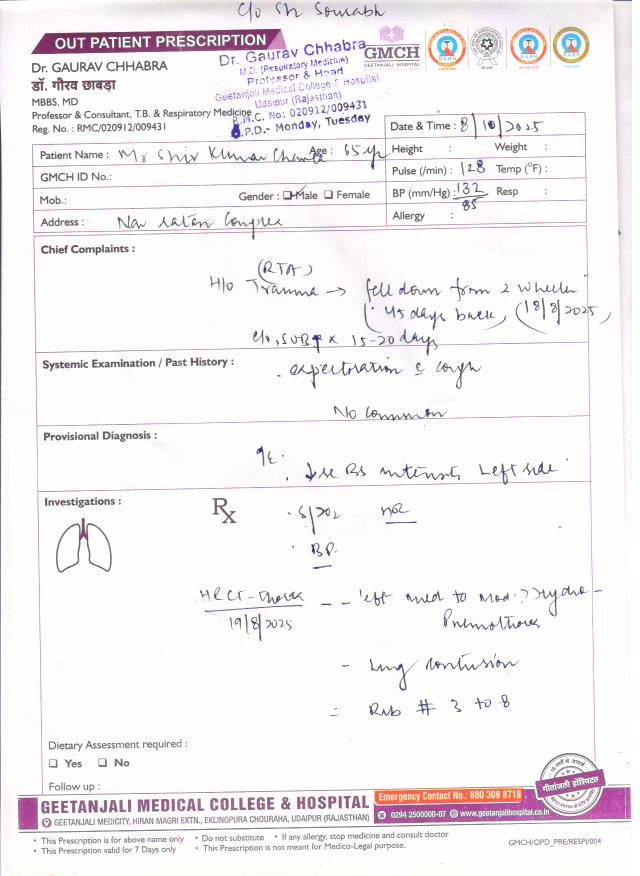 c/o Sh Sourabh
OUT PATIENT PRESCRIPTION
Dr. GAURAV CHHABRA
डॉ. गौरव छाबड़ा
MBBS, MD
Professor & Consultant, T.B. & Respiratory Medicine
Reg. No. : RMC/020912/009431
Dr. Gaurav Chhabra
M.D. (Respiratory Medicine)
Professor & Head
Geetanjali Medical College & Hospital
Udaipur (Rajasthan)
R.M.C. No: 020912/009431
O.P.D.- Monday, Tuesday
GMCH
GEETANJALI HOSPITAL
NABH
NABH
NABH
Date & Time : 8/10/2025
Patient Name : Mr Shiv Kumar Age : 65 yr
Height : Weight :
GMCH ID No.:
Pulse (/min) : 128 Temp (°F) :
Mob.: Gender : Male Female
BP (mm/Hg) : 132/85 Resp :
Address : Nav ratan Complex
Allergy :
Chief Complaints :
(RTA)
H/o Trauma → fell down from 2 wheeler
(45 days back, (18/8/2025)
c/o, SOB x 15-20 days
Systemic Examination / Past History :
. expectoration c cough
No common
Provisional Diagnosis :
O/E.
. ↓se BS intensity Left side
Investigations :
Rx
. BP
HRCT-Thorax -- Left mild to Mod. ?? Hydro-
19/8/2025 Pnemothorax
- Lung contusion
= Rib # 3 to 8
Dietary Assessment required :
Yes No
Follow up :
गीतांजली हॉस्पिटल
GEETANJALI MEDICAL COLLEGE & HOSPITAL
Emergency Contact No.: 800 309 8718
GEETANJALI MEDICITY, HIRAN MAGRI EXTN., EKLINGPURA CHOURAHA, UDAIPUR (RAJASTHAN)
0294 2500000-07 www.geetanjalihospital.co.in
• This Prescription is for above name only • Do not substitute • If any allergy, stop medicine and consult doctor
• This Prescription valid for 7 Days only • This Prescription is not meant for Medico-Legal purpose.
GMCH/OPD_PRE/RESPI/004